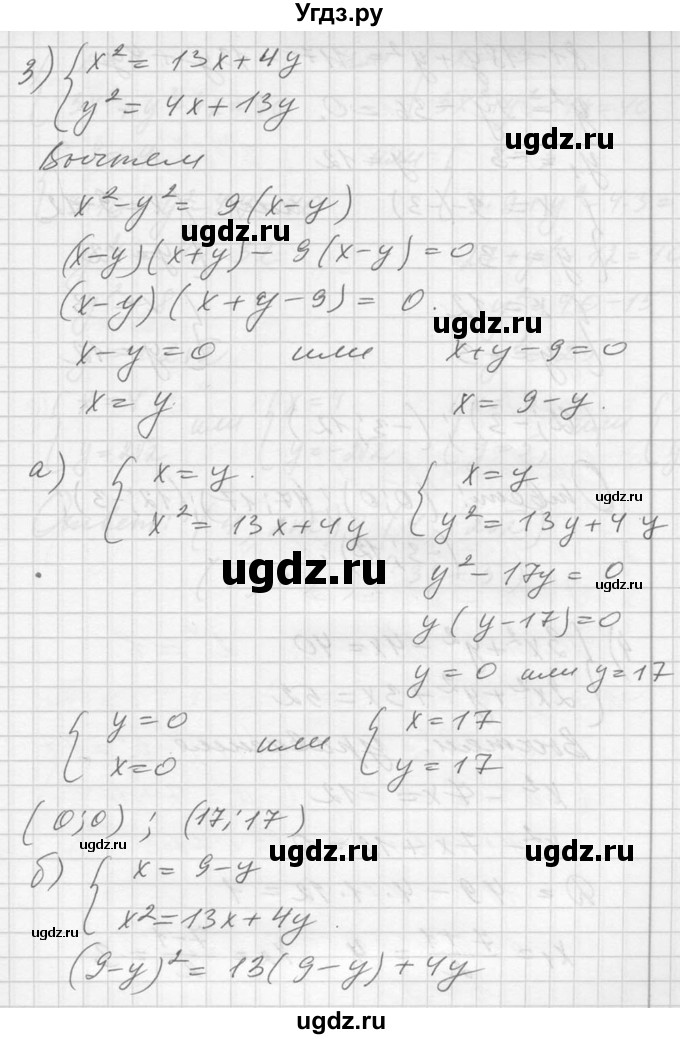 Угдз.ру
3) { x² = 13x + 4y
y² = 4x + 13y
ugdz.ru
Вычтем
x² - y² = 9(x-y)
ugdz.ru
(x-y)(x+y) - 9(x-y) = 0
(x-y)(x+y-9) = 0.
ugdz.ru
x-y=0 или x+y-9=0
x = y. x = 9-y.
а) { x = y. { x = y
ugdz.ru
x² = 13x+4y y² = 13y+4y
ugdz.ru
y² - 17y = 0
ugdz.ru
y(y-17)=0
y = 0 или y = 17
{ y = 0 или { x = 17
x = 0 y = 17
ugdz.ru
(0;0); (17;17)
ugdz.ru
ugdz.ru
ugdz.ru
б) { x = 9-y
x² = 13x+4y.
ugdz.ru
ugdz.ru
(9-y)² = 13(9-y)+4y
ugdz.ru